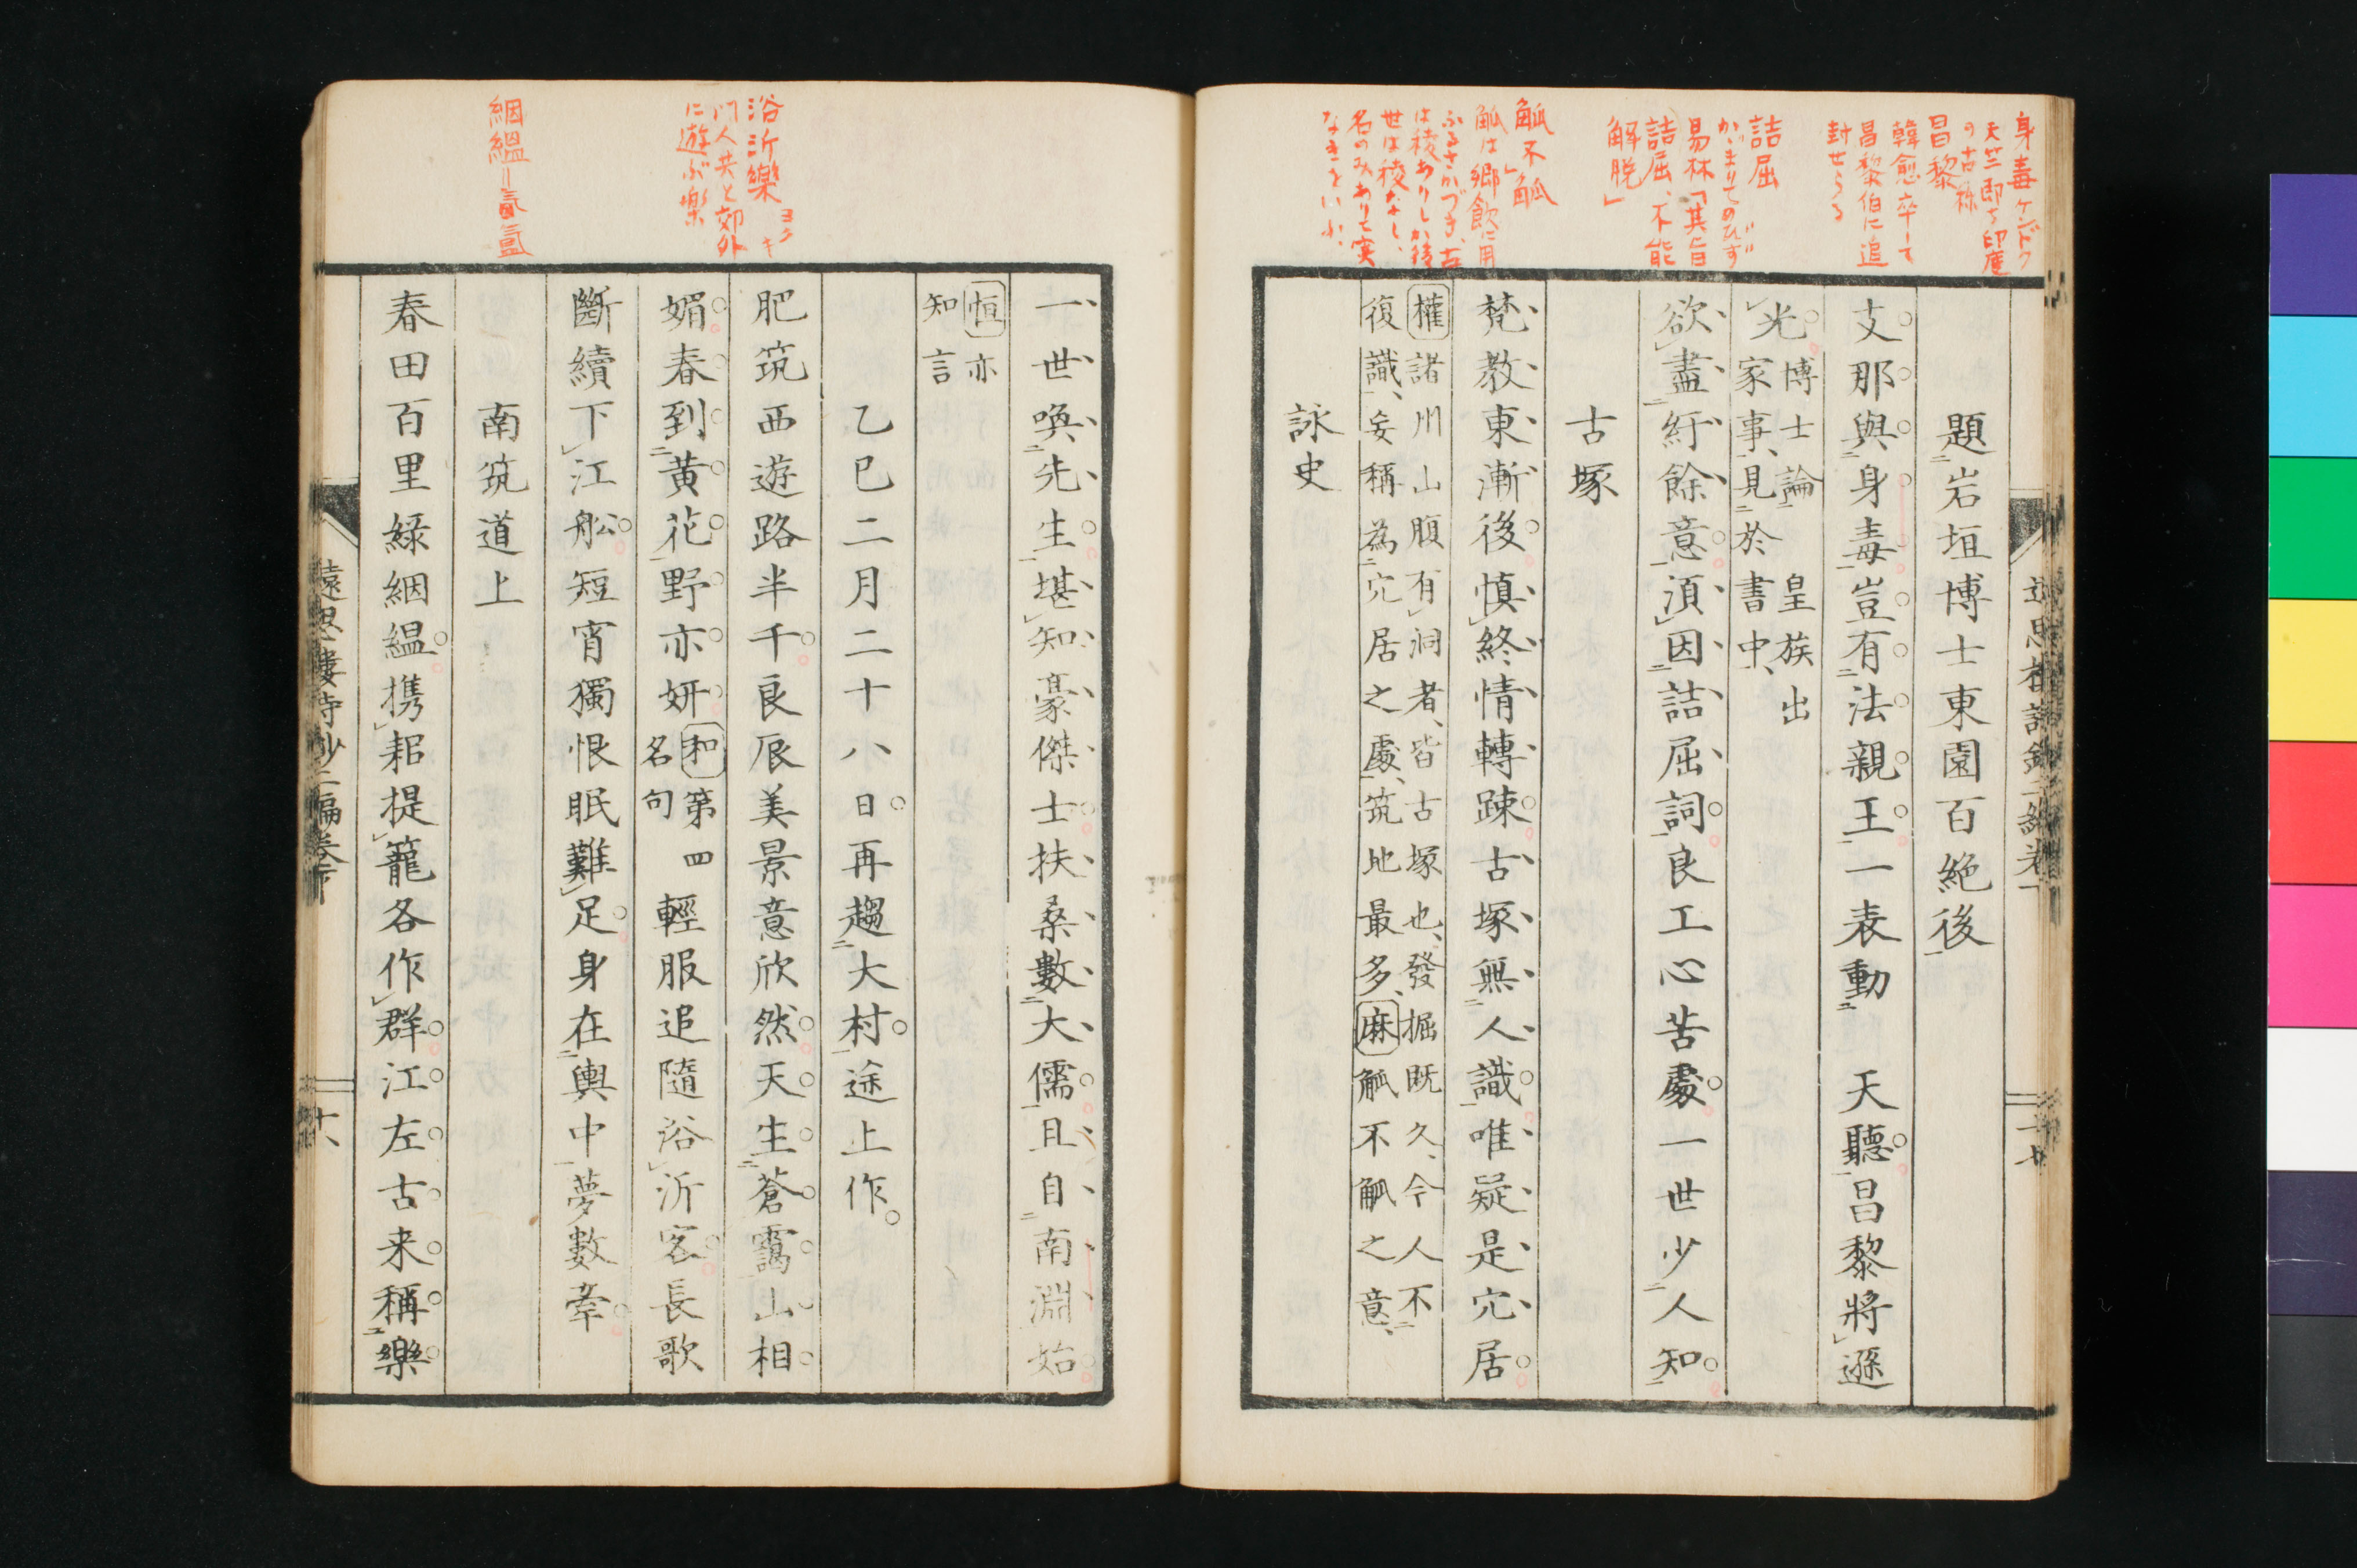 身毒 ケンドク
天竺即ち印度
の古称
昌黎
韓愈卒して
昌黎伯に追
封せらる
詰屈
かゞまりてのびず
易林「其旨
詰屈、不能
解脱」
觚不觚
觚は郷飲に用
ふるさかづき、古
は稜ありしが後
世は稜なし、
名のみありて実
なきをいふ、
題岩垣博士東園百絶後
支那與身毒豈有法親王一表動　天聽昌黎將遜
光博士論　皇族出
家事、見於書中、
欲盡紆餘意須因詰屈詞良工心苦處一世少人知
古塚
梵教東漸後慎終情轉踈古塚無人識唯疑是穴居
權諸州山腹有洞者、皆古塚也、發掘既久、今人不
復識、妄稱為穴居之處、筑地最多、麻觚不觚之意、
詠史
浴沂樂 ヨクキ
門人共と郊外
に遊ぶ楽
絪縕＝氤氳
一世喚先生堪知豪傑士扶桑數大儒且自南淵始
恒亦
知言
乙巳二月二十八日再趨大村途上作
肥筑西遊路半千良辰美景意欣然天生蒼靄山相
媚春到黄花野亦妍和第四
名句輕服追隨浴沂客長歌
斷續下江船短宵獨恨眠難足身在輿中夢數牽
南筑道上
春田百里緑絪縕携耜提籠各作群江左古来稱樂
遠思樓詩鈔二編卷下
十八